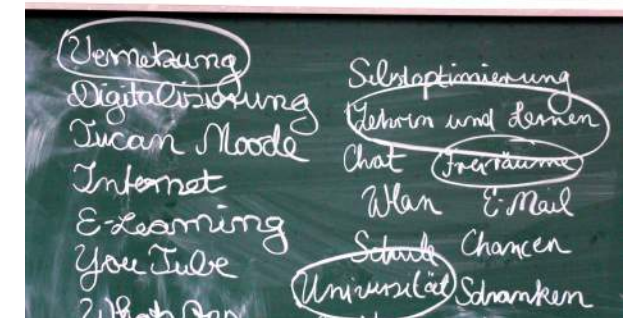 Vernetzung
Digitalisierung
Tucan Moodle
Internet
E-Learning
YouTube
WhatsApp
Selbstoptimierung
Lehren und Lernen
Chat Freiräume
Wlan E-Mail
Schule Chancen
Universität Schranken